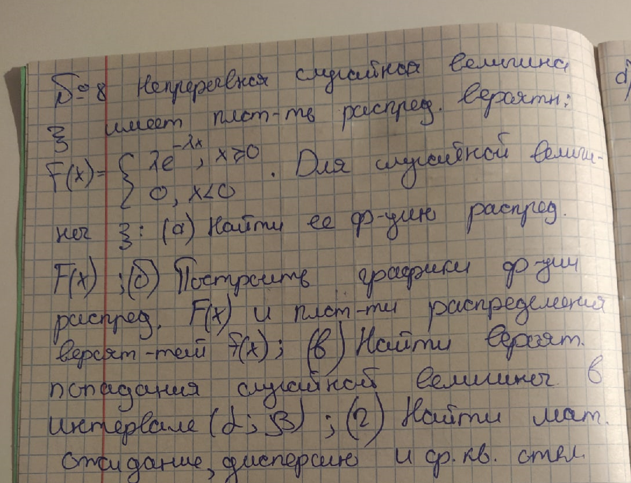 №8 Непрерывная случайная величина
ξ имеет плот-ть распред. вероятн:
f(x)= { λe^-λx, x≥0
0, x<0 . Для случайной величи-
ны ξ: (а) Найти ее ф-цию распред.
F(x) ; (б) Построить графики ф-ции
распред. F(x) и плот-ти распределения
вероят-тей f(x); (в) Найти вероят.
попадания случайной величины в
интервале (α; β) ; (г) Найти мат.
ожидание, дисперсию и ср. кв. откл.